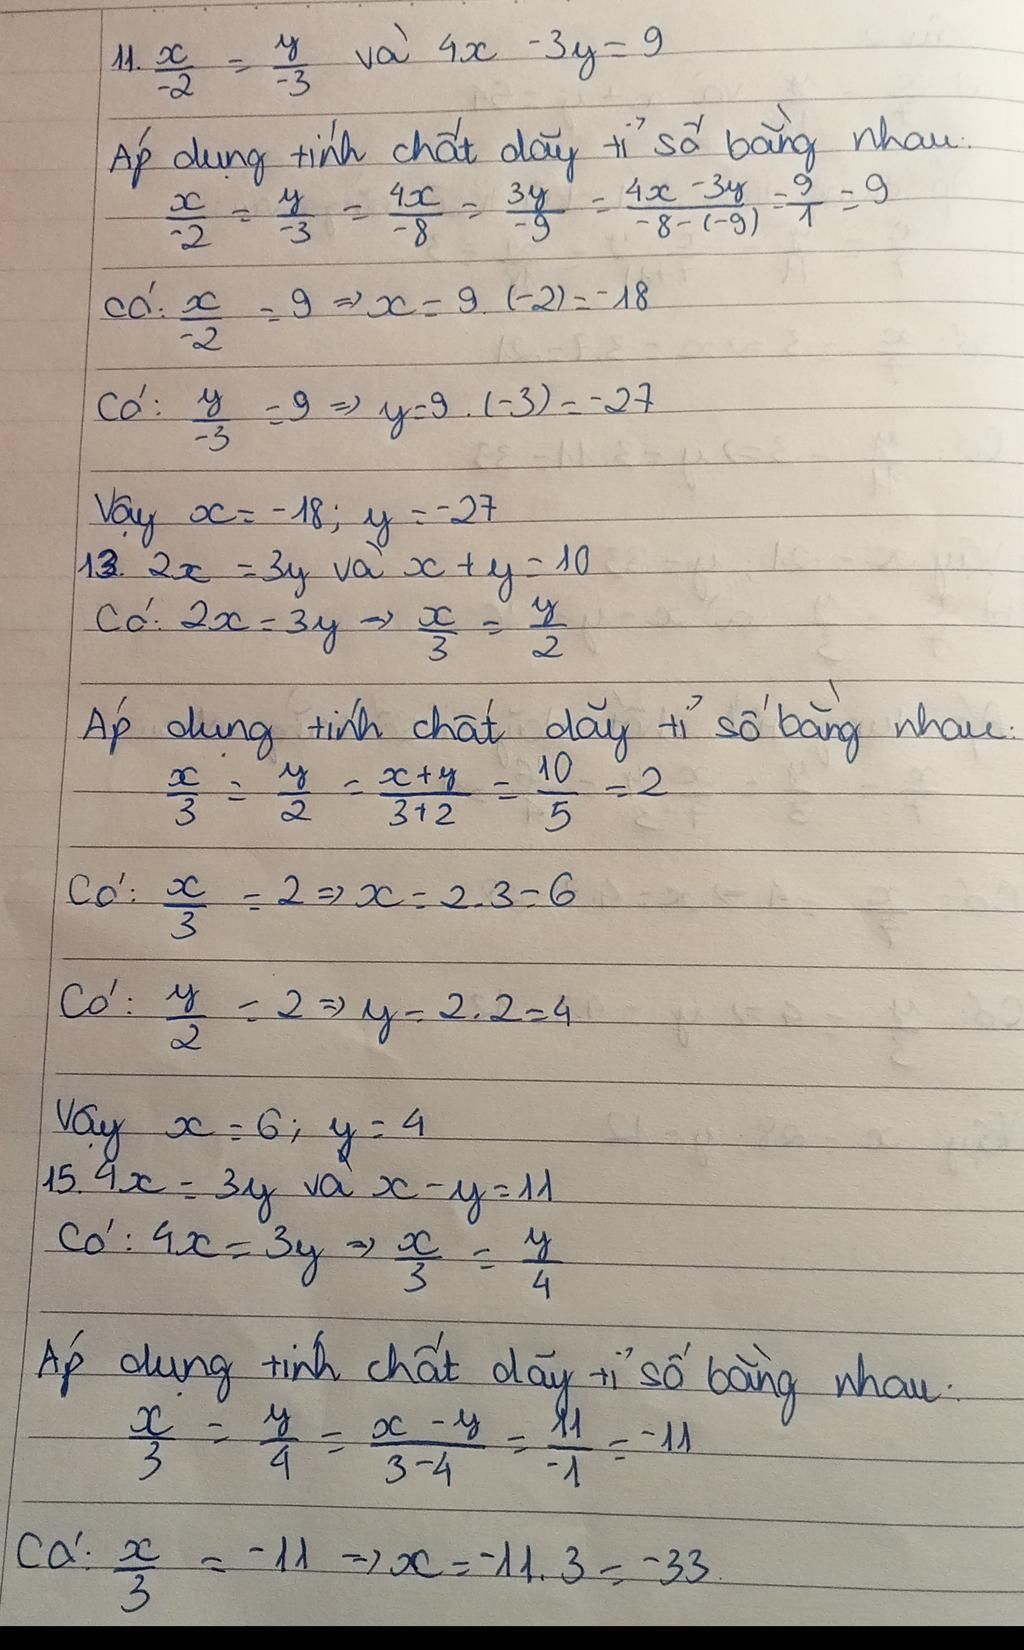 11. x/-2 = y/-3 và 4x - 3y = 9
Áp dụng tính chất dãy tỉ số bằng nhau:
x/-2 = y/-3 = 4x/-8 = 3y/-9 = 4x - 3y/-8-(-9) = 9/1 = 9
Có: x/-2 = 9 => x = 9.(-2) = -18
Có: y/-3 = 9 => y = 9.(-3) = -27
Vậy x = -18; y = -27
13. 2x = 3y và x + y = 10
Có: 2x = 3y => x/3 = y/2
Áp dụng tính chất dãy tỉ số bằng nhau:
x/3 = y/2 = x+y/3+2 = 10/5 = 2
Có: x/3 = 2 => x = 2.3 = 6
Có: y/2 = 2 => y = 2.2 = 4
Vậy x = 6; y = 4
15. 4x = 3y và x - y = 11
Có: 4x = 3y => x/3 = y/4
Áp dụng tính chất dãy tỉ số bằng nhau:
x/3 = y/4 = x - y/3-4 = 11/-1 = -11
Có: x/3 = -11 => x = -11.3 = -33